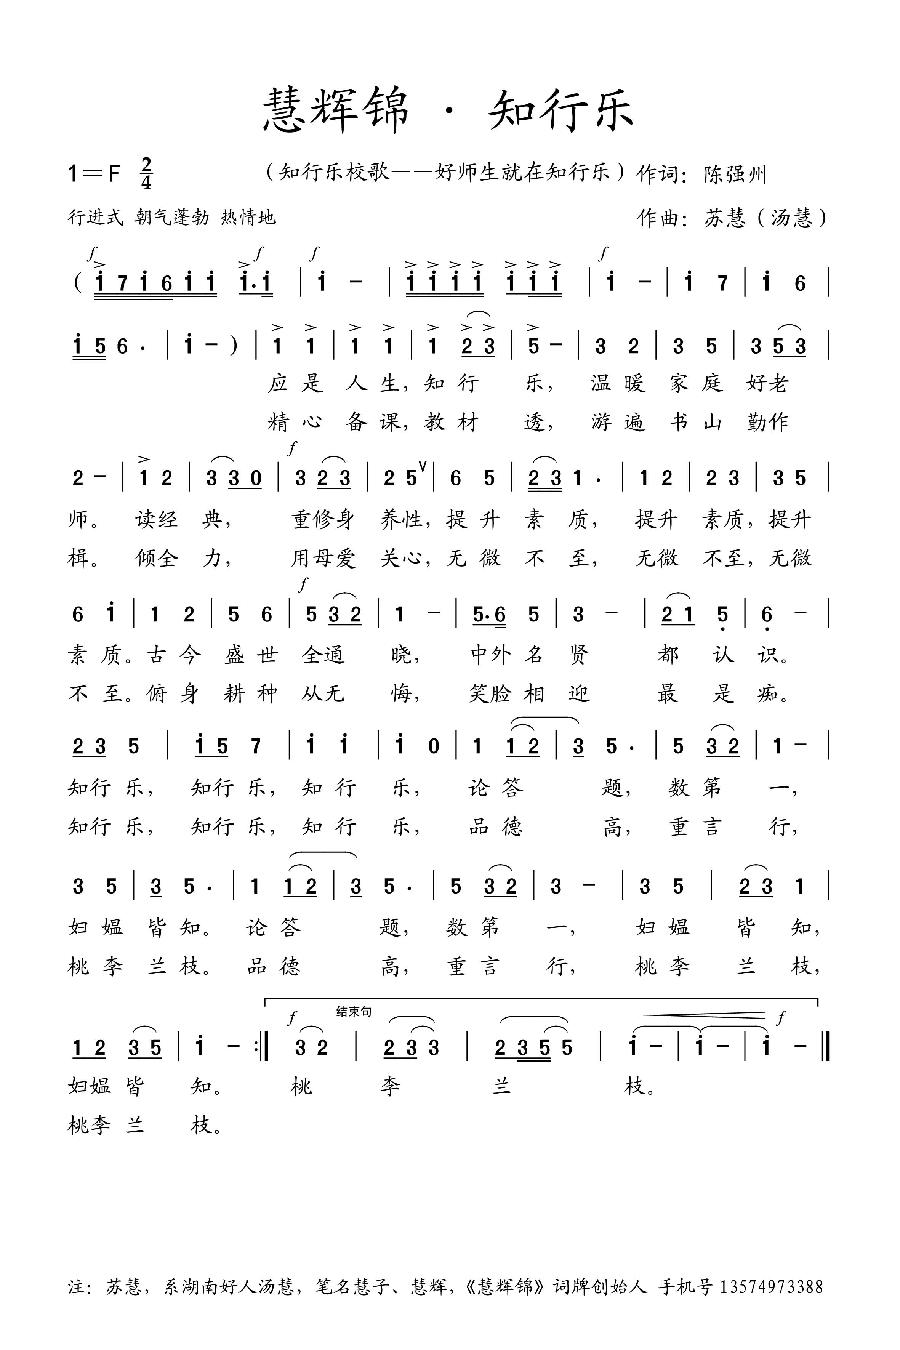 慧辉锦 · 知行乐
1＝F 2/4 （知行乐校歌——好师生就在知行乐）作词：陈强州
行进式 朝气蓬勃 热情地 作曲：苏慧（汤慧）
f f f f
（ i 7 i 6 i i i· i | i － | i i i i i i i | i － | i 7 | i 6 |
i 5 6 · | i － ）| 1 1 | 1 1 | 1 2 3 | 5 － | 3 2 | 3 5 | 3 5 3 |
应 是 人 生，知 行 乐， 温 暖 家 庭 好老
精 心 备 课，教 材 透， 游 遍 书 山 勤作
f
2 － | 1 2 | 3 3 0 | 3 2 3 | 2 5 V | 6 5 | 2 3 1 · | 1 2 | 2 3 | 3 5 |
师。 读经 典， 重修身 养性，提 升 素 质， 提升 素质，提升
楫。 倾全 力， 用母爱 关心，无 微 不 至， 无微 不至，无微
f
6 i | 1 2 | 5 6 | 5 3 2 | 1 － | 5· 6 5 | 3 － | 2 1 5 | 6 － |
素 质。古 今 盛 世 全通 晓， 中外 名 贤 都 认 识。
不 至。俯 身 耕 种 从无 悔， 笑脸 相 迎 最 是 痴。
2 3 5 | i 5 7 | i i | i 0 | 1 1 2 | 3 5 · | 5 3 2 | 1 － |
知行 乐， 知行 乐，知 行 乐， 论 答 题，数 第 一，
知行 乐， 知行 乐，知 行 乐， 品 德 高，重 言 行，
3 5 | 3 5 · | 1 1 2 | 3 5 · | 5 3 2 | 3 － | 3 5 | 2 3 1 |
妇 媪 皆 知。 论 答 题，数 第 一， 妇 媪 皆 知，
桃 李 兰 枝。 品 德 高，重 言 行， 桃 李 兰 枝，
f 结束句 f
1 2 3 5 | i － :‖ 3 2 | 2 3 3 | 2 3 5 5 | i － | i － | i － ‖
妇媪 皆 知。 桃 李 兰 枝。
桃李 兰 枝。
注：苏慧，系湖南好人汤慧，笔名慧子、慧辉，《慧辉锦》词牌创始人 手机号 13574973388